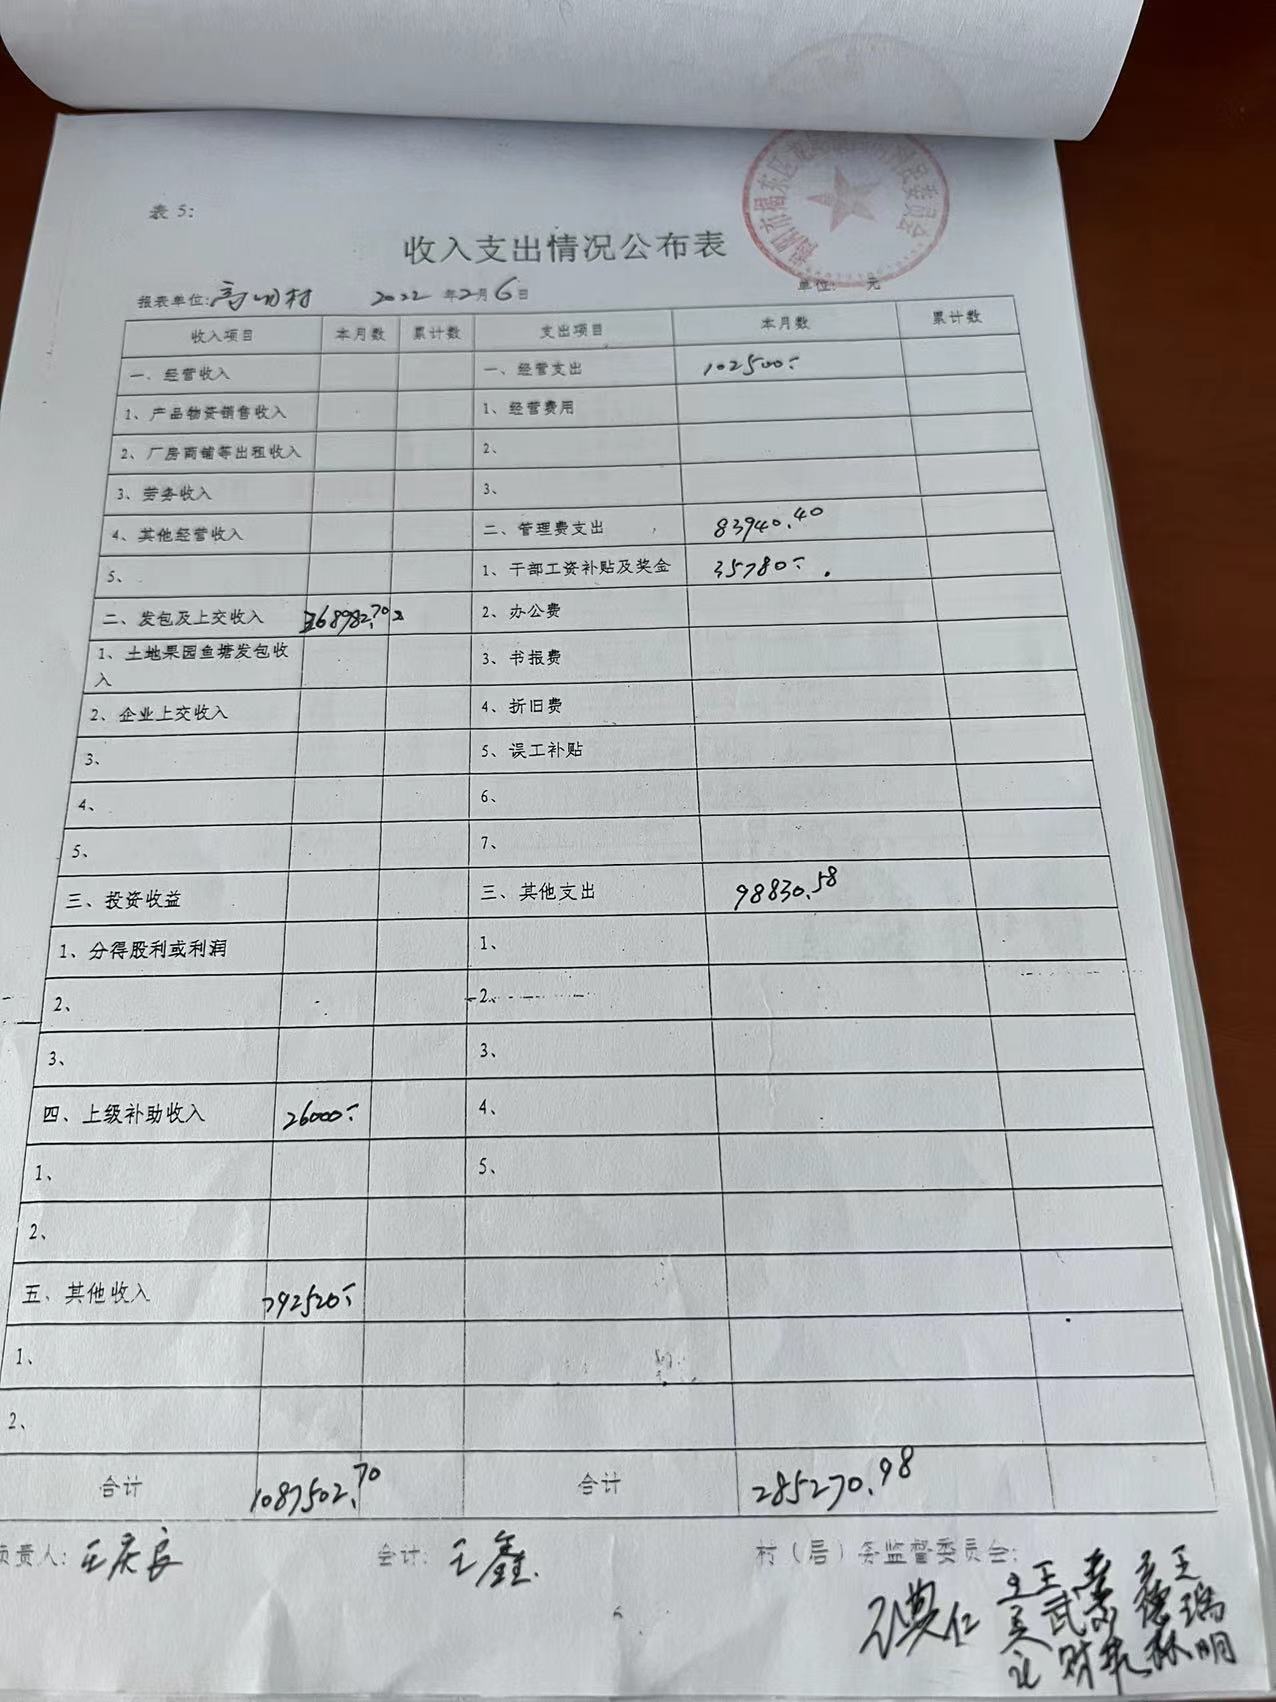 表 5:
收入支出情况公布表
报表单位: 村 2022 年2月6日 单位: 元
收入项目 本月数 累计数 支出项目 本月数 累计数
一、经营收入 一、经营支出 102500
1、产品物资销售收入 1、经营费用
2、厂房商铺等出租收入 2、
3、劳务收入 3、
4、其他经营收入 二、管理费支出 83940.40
5、 1、干部工资补贴及奖金 35780
二、发包及上交收入 68982.70 2、办公费
1、土地果园鱼塘发包收入 3、书报费
2、企业上交收入 4、折旧费
3、 5、误工补贴
4、 6、
5、 7、
三、投资收益 三、其他支出 98830.58
1、分得股利或利润 1、
2、 2、
3、 3、
四、上级补助收入 26000 4、
1、 5、
2、
五、其他收入 92520
1、
2、
合计 1087502.70 合计 285270.98
负责人: 王庆良 会计: 王鑫 村（居）务监督委员会: